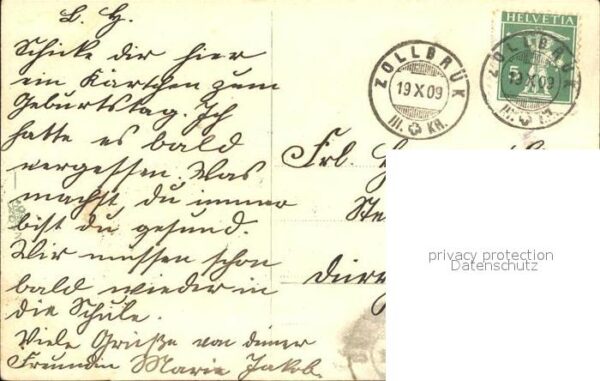 L. H.
Schicke dir hier
ein Kärtchen zum
Geburtstag. Ich
hatte es bald
vergessen. Was
machst du immer
bist du gesund.
Wir müssen schon
bald wieder in
die Schule.
Viele Grüße von deiner
Freundin Marie Jakob.
HELVETIA
ZOLLBRÜK
19 X 09
III. KR.
ZOLLBRÜK
19 X 09
Frl.
privacy protection
Datenschutz